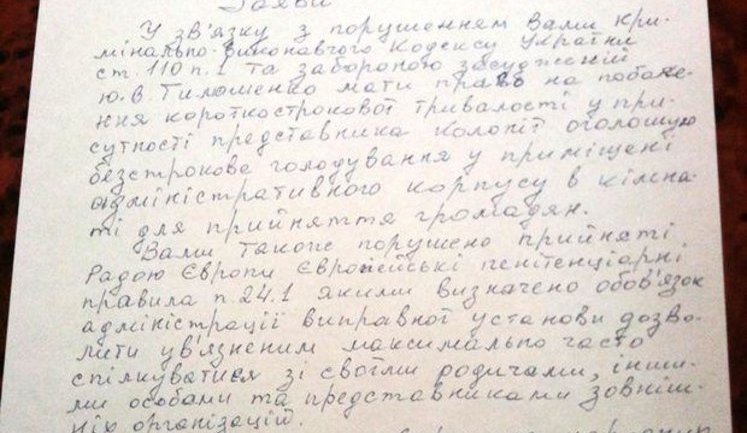 Заяви
У зв'язку з порушенням Вами Кри-
мінально-виконавчого Кодексу України
ст. 110 п.1 та забороною засудженій
Ю.В. Тимошенко мати право на побаче-
ння короткострокової тривалості у при-
сутності представника колонії оголошую
безстрокове голодування у приміщені
адміністративного корпусу в кімна-
ті для прийняття громадян.
Вами також порушено прийняті
Радою Європи Європейські пенітенціарні
правила п. 24.1 якими визначено обов'язок
адміністрації виправної установи дозво-
лити ув'язненим максимально часто
спілкуватися зі своїми родичами, інши-
ми особами та представниками зовніш-
ніх організацій.